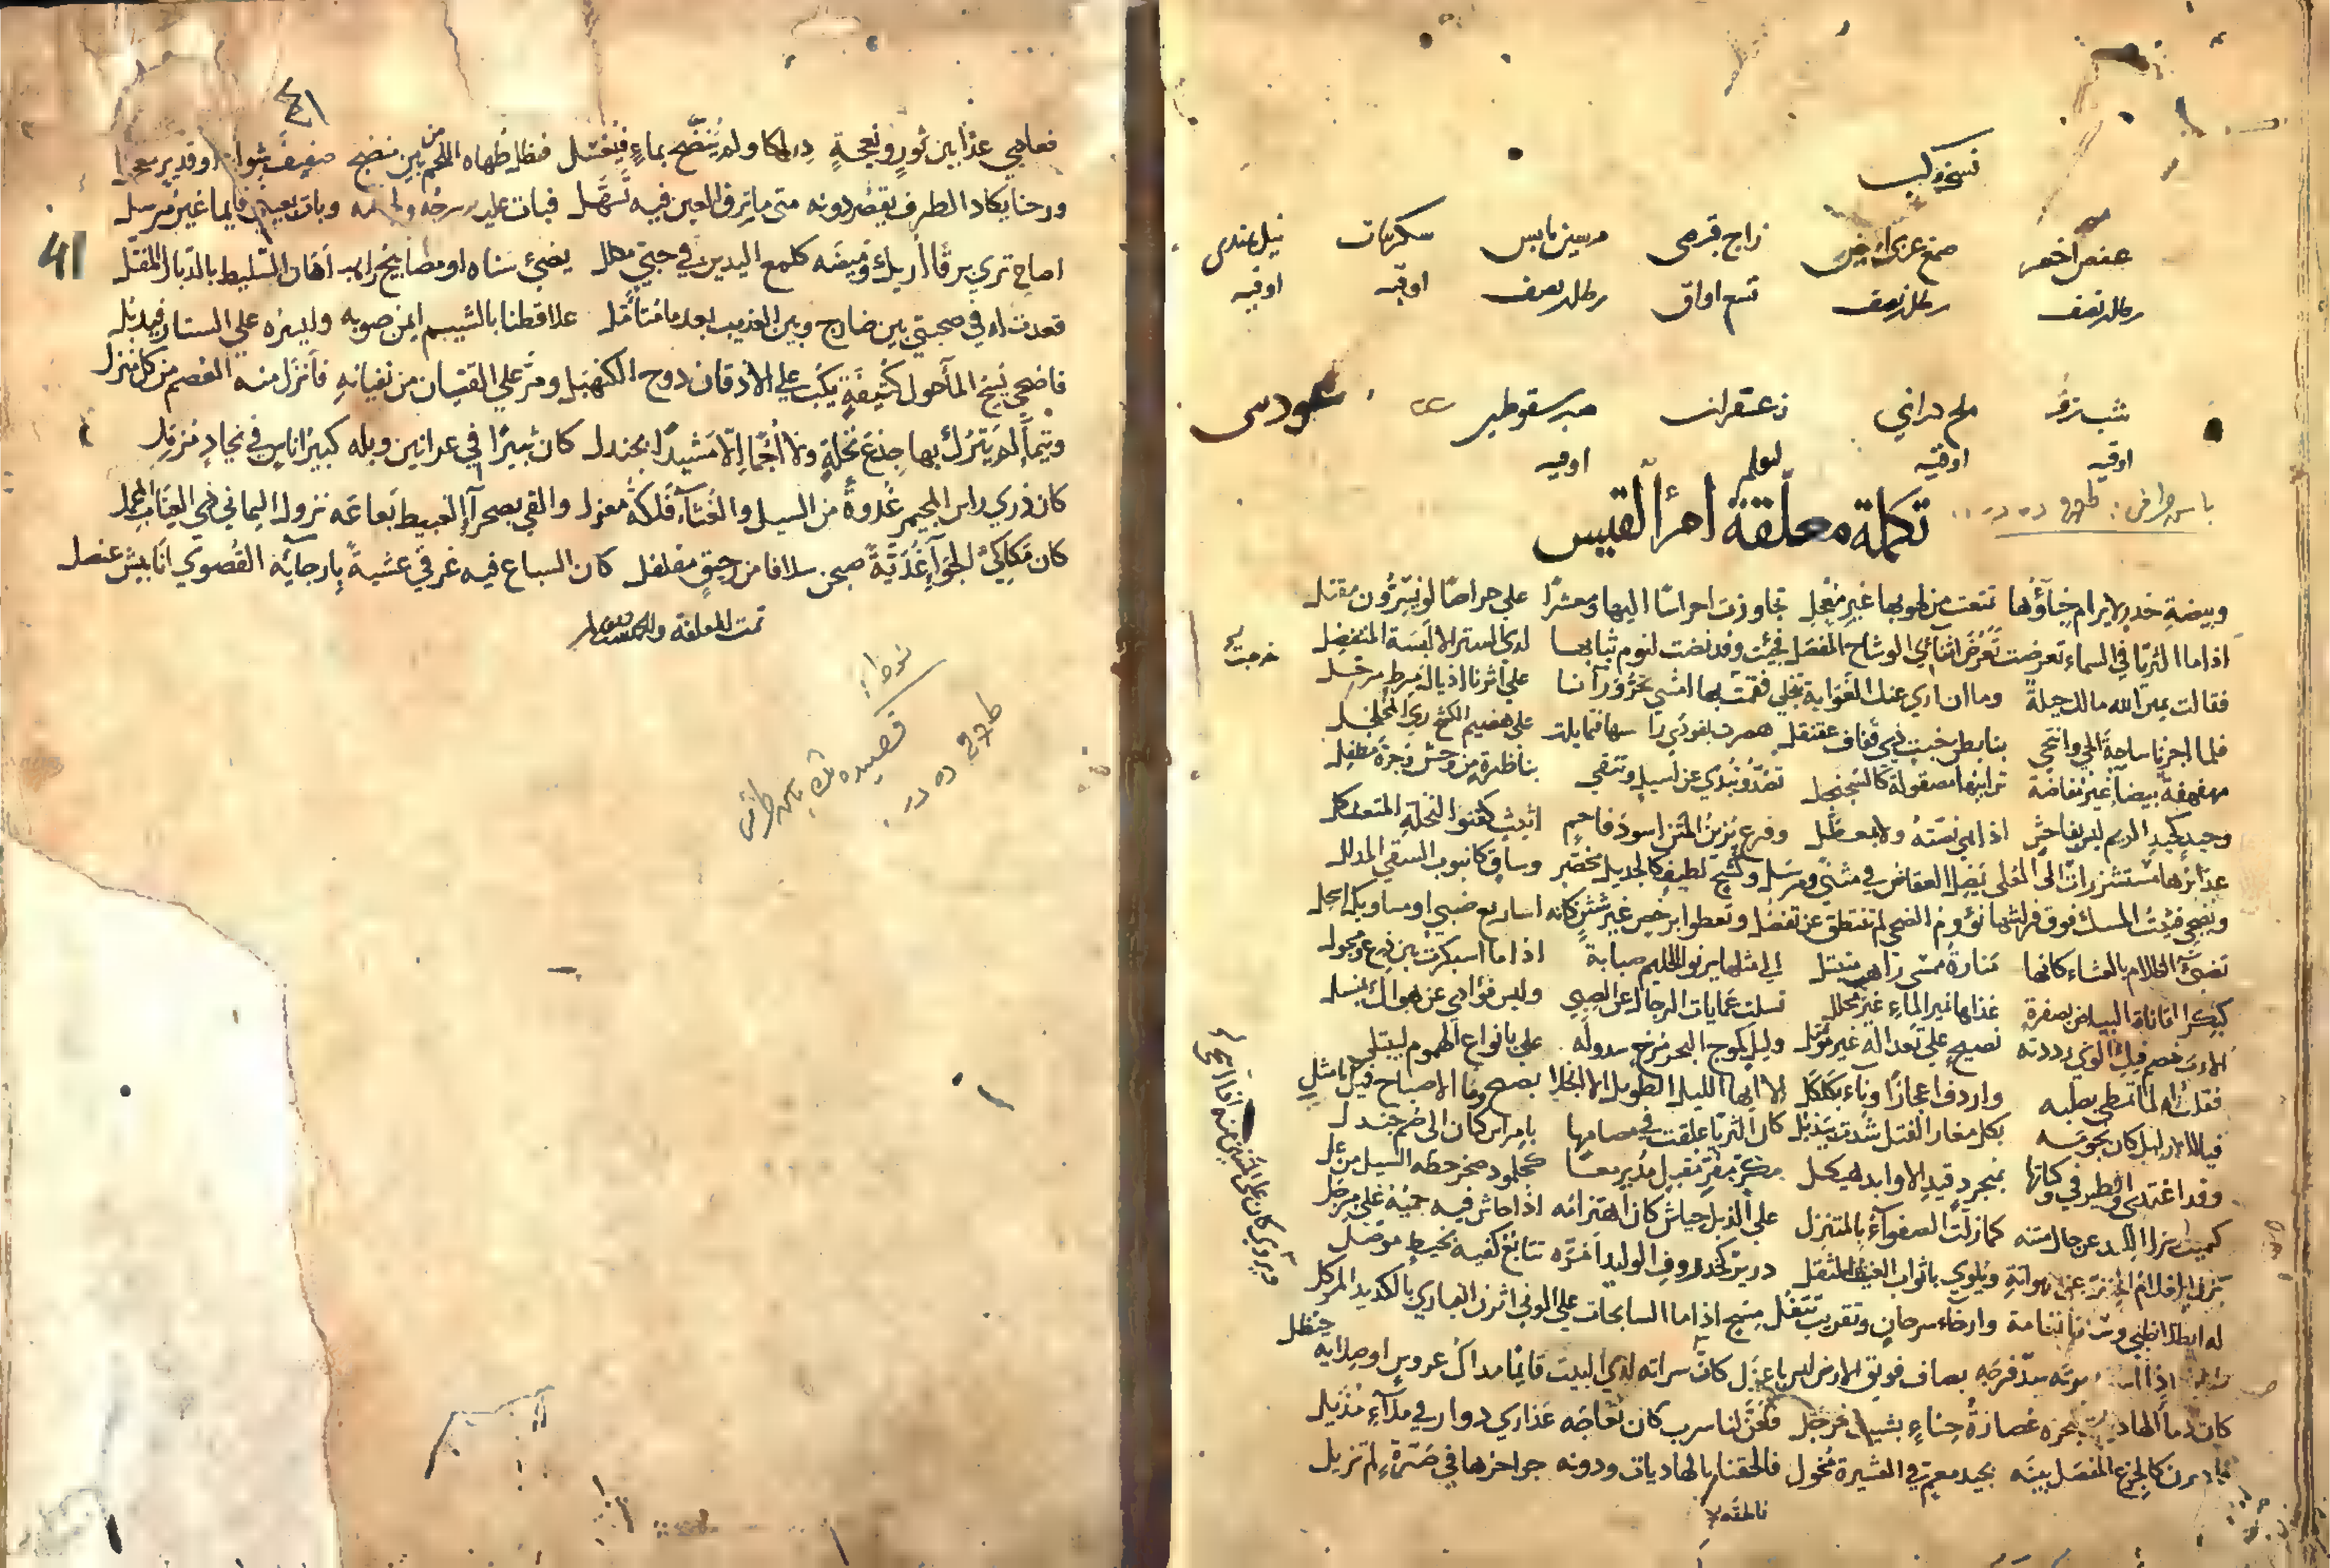 نسخة مركب
عفص اخضر صمغ عربى زاج قبرصى مرسين يابس سكر نبات نيل هندى
رطل ونصف رطل ونصف تسع اواق رطل ونصف اوقيه اوقيه
شب ملح دراني زعفران صبر سقوطري
اوقيه اوقيه اوقيه
تكملة معلقة امرأ القيس
وبيضة خدر لا يرام خباؤُها تمتعت من لهو بها غير معجل تجاوزت احراسًا اليها ومعشرًا على حراصًا لو يسرون مقتل
اذا ما الثريا في السماء تعرضت تعرض اثنآئ الوشاح المفصل فجئت وقد نضت لنوم ثيابها لدى الستر الا لبسة المتفضل
فقالت يمين الله مالك حيلة وما ان ارى عنك الغواية تنجلي فقمت بها امشي تجر ورآنا على اثرنا اذيال مرط مرحل
خرجت
فلما اجزنا ساحة الحي وانتحى بنا بطن خبت ذي قفاف عقنقل هصرت بفودي را سها فتمايلت على هضيم الكشح ريا المخلخل
مهفهفة بيضآ غير مفاضة ترايبها مصقولة كالسجنجل تصد وتبدي عن اسيل وتتقي بناظرة من وحش وجرة مطفل
وجيد كجيد الريم ليس بفاحش اذا هي نصته ولا بمعطل وفرع يزين المتن اسود فاحم اثيث كقنو النخلة المتعثكل
غدائرها مستشزرات الى العلى تضل العقاص في مثنى ومرسل وكشح لطيف كالجديل مخصر وساق كانبوب السقي المدلل
وتضحي فتيت المسك فوق فراشها نؤوم الضحى لم تنتطق عن تفضل وتعطو برخص غير شثن كانه اساريع ضبي او مساويك اسحل
تضئ الظلام بالعشاء كانها منارة ممسى راهب متبتل الى مثلها يرنو الحليم صبابة اذا ما اسبكرت بين درع ومجول
كبكر المقاناة البياض بصفرة غذاها نمير الماء غير محلل تسلت عمايات الرجال عن الصبي وليس فؤادي عن هواك بمنسل
الا رب خصم فيك الوى رددته نصيح على تعذاله غير مؤتل وليل كموج البحر مرخ سدوله على بانواع الهموم ليبتلي
فقلت له لما تمطى بصلبه واردف اعجازًا وناء بكلكل الا ايها الليل الطويل الا انجل بصبح وما الاصباح فيك بامثل
فيالك من ليل كان نجومه بكل مغار الفتل شدت بيذبل كان الثريا علقت في مصامها بامراس كتان الى صم جندل
وقد اغتدى والطير في وكناتها بمنجرد قيد الاوابد هيكل مكر مفر مقبل مدبر معا كجلمود صخر حطه السيل من عل
كميت يزل اللبد عن حال متنه كما زلت الصفوآء بالمتنزل على الذبل جياش كان اهتزامه اذا جاش فيه حميه غلي مرجل
يزل الغلام الخف عن صهواته ويلوي باثواب العنيف المثقل درير كخذروف الوليد امره تتابع كفيه بخيط موصل
له ايطلا ظبي وساقا نعامة وارخاء سرحان وتقريب تتفل مسح اذا ما السابحات على الونى اثرن الغبار بالكديد المركل
اذا استدبرته سد فرجه بضاف فويق الارض ليس باعزل كان سراته لدى البيت قايمًا مداك عروس او صلاية حنظل
كان دماء الهاديات بنحره عصارة حناء بشيب مرجل فعن لنا سرب كان نعاجه عذارى دوار في ملآء مذيل
فادبرن كالجزع المفصل بينه بجيد معم في العشيرة مخول فالحقنا بالهاديات ودونه جواحرها في صرة لم تزيل
ويروى كان على المتنين منه اذا انتحى
٤١
41
فعادي عداء بين ثور ونعجة دراكا ولم ينضح بماء فيغسل فظل طهاه اللحم من بين منضج صفيف شواء او قدير معجل
ورحنا يكاد الطرف يقصر دونه متى ما ترق العين فيه تسهل فبات عليه سرجه ولجامه وبات بعيني قايما غير مرسل
اصاح ترى برقًا اريك وميضه كلمع اليدين في حبي مكلل يضئ سناه او مصابيح راهب اهان السليط بالذبال المفتل
قعدت له وصحبتي بين ضارج وبين العذيب بعد ما متأمل علا قطنا بالشيم ايمن صوبه وايسره على الستار فيذبل
فاضحى يسح المآ حول كثيفة يكب على الاذقان دوح الكنهبل ومر على القنان من نفيانه فانزل منه العصم من كل منزل
وتيمآ لم يترك بها جذع نخلة ولا اجمًا الا مشيدًا بجندل كان ثبيرًا في عرانين وبله كبير اناس في بجاد مزمل
كان ذرى راس المجيمر غدوة من السيل والغثآء فلكة مغزل والقى بصحرآء الغبيط بعاعه نزول اليماني ذي العياب المحمل
كان مكاكي الجوآء غدية صبحن سلافا من رحيق مفلفل كان السباع فيه غرقى عشية بارجايه القصوى انابيش عنصل
تمت المعلقه والحمد لله